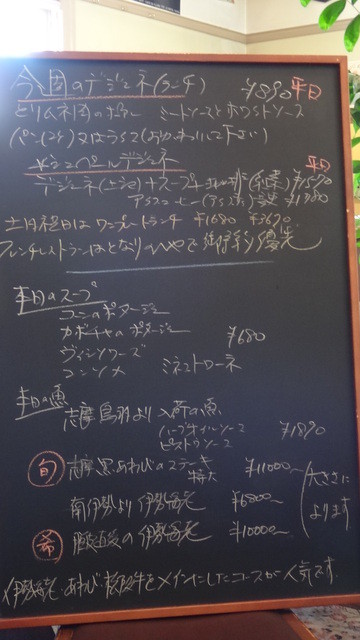 今週のデジュネ(ランチ) ¥1890 平日
とりムネ肉のポワレ ミートソースとホワイトソース
(パン(2ケ)又はライス(おかわりして下さい)
スペシャルデジュネ 平日
デジュネ(上記)+スープ+
アイスコーヒー(アイスティ)
土日祝日はワンプレートランチ ¥1680 ¥3670
フレンチレストランはとなりの 御予約優先
本日のスープ
コーンのポタージュ
カボチャのポタージュ
ヴィシソワーズ ¥680
コンソメ ミネストローネ
本日の魚
志摩鳥羽より入荷の魚
ハーブオイルソース
ピストゥソース ¥1890
旬 志摩黒あわびのステーキ 特大 ¥11000〜
南伊勢より伊勢海老 ¥6800〜
希 の伊勢海老 ¥10000〜
大きさに
よります
伊勢海老、あわび、松阪牛をメインにしたコースが人気です。